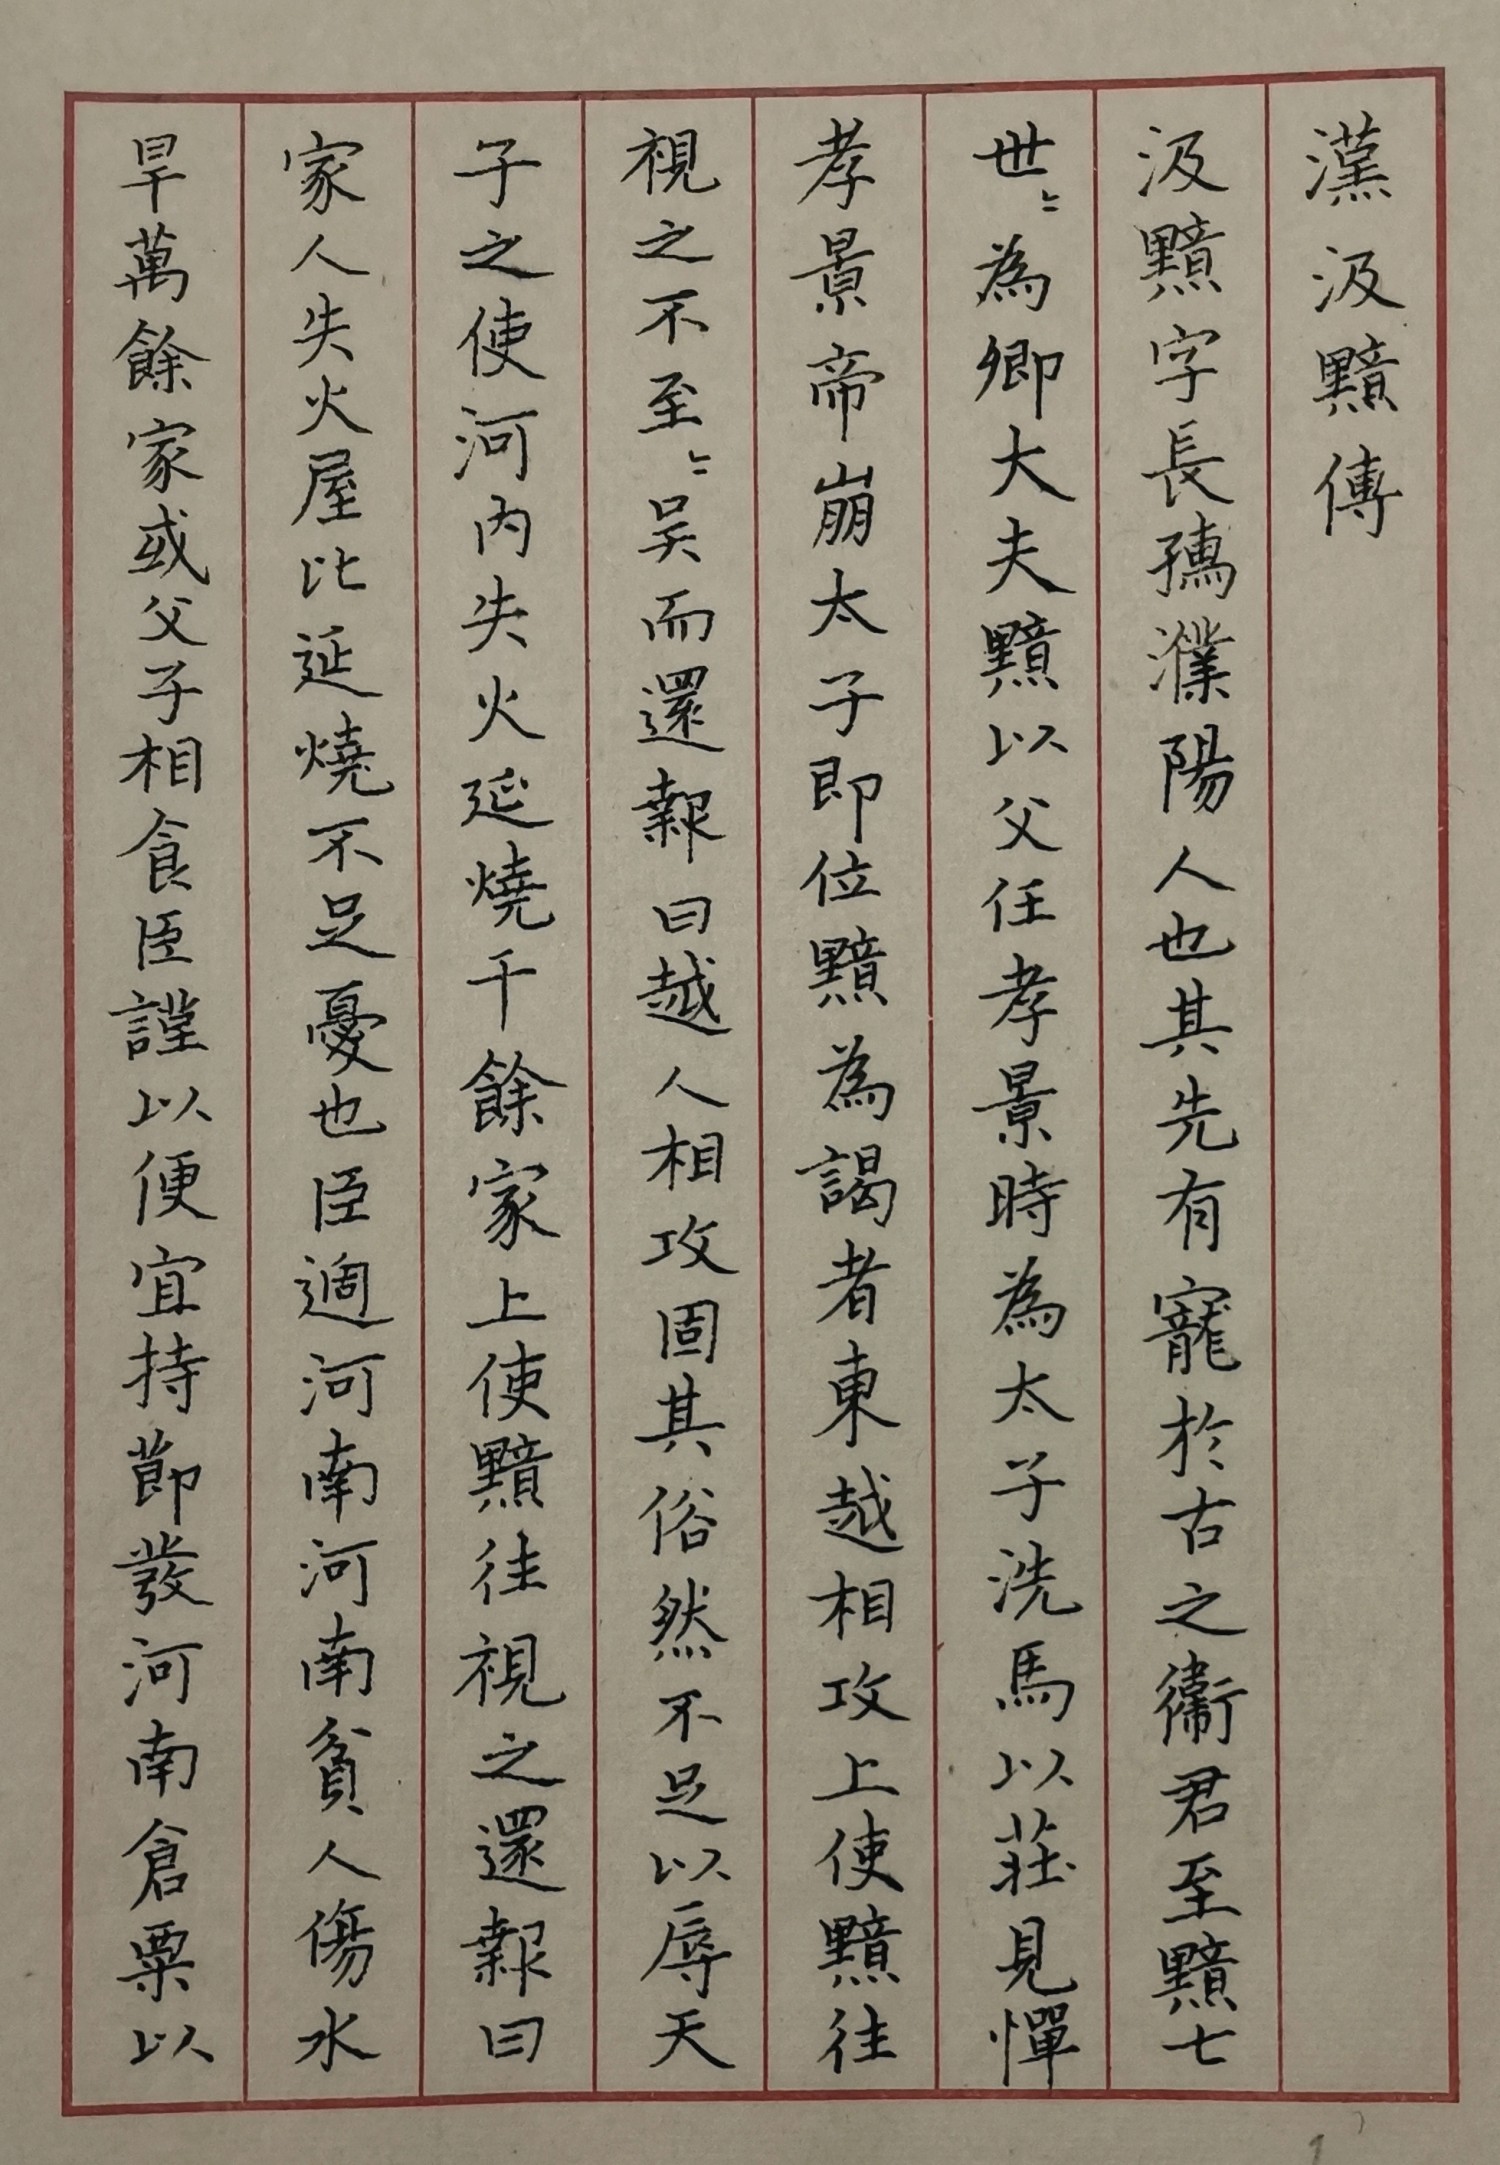 漢汲黯傳
汲黯字長孺濮陽人也其先有寵於古之衞君至黯七
世〻為卿大夫黯以父任孝景時為太子洗馬以莊見憚
孝景帝崩太子即位黯為謁者東越相攻上使黯往
視之不至〻吳而還報曰越人相攻固其俗然不足以辱天
子之使河内失火延燒千餘家上使黯往視之還報曰
家人失火屋比延燒不足憂也臣過河南河南貧人傷水
旱萬餘家或父子相食臣謹以便宜持節發河南倉粟以